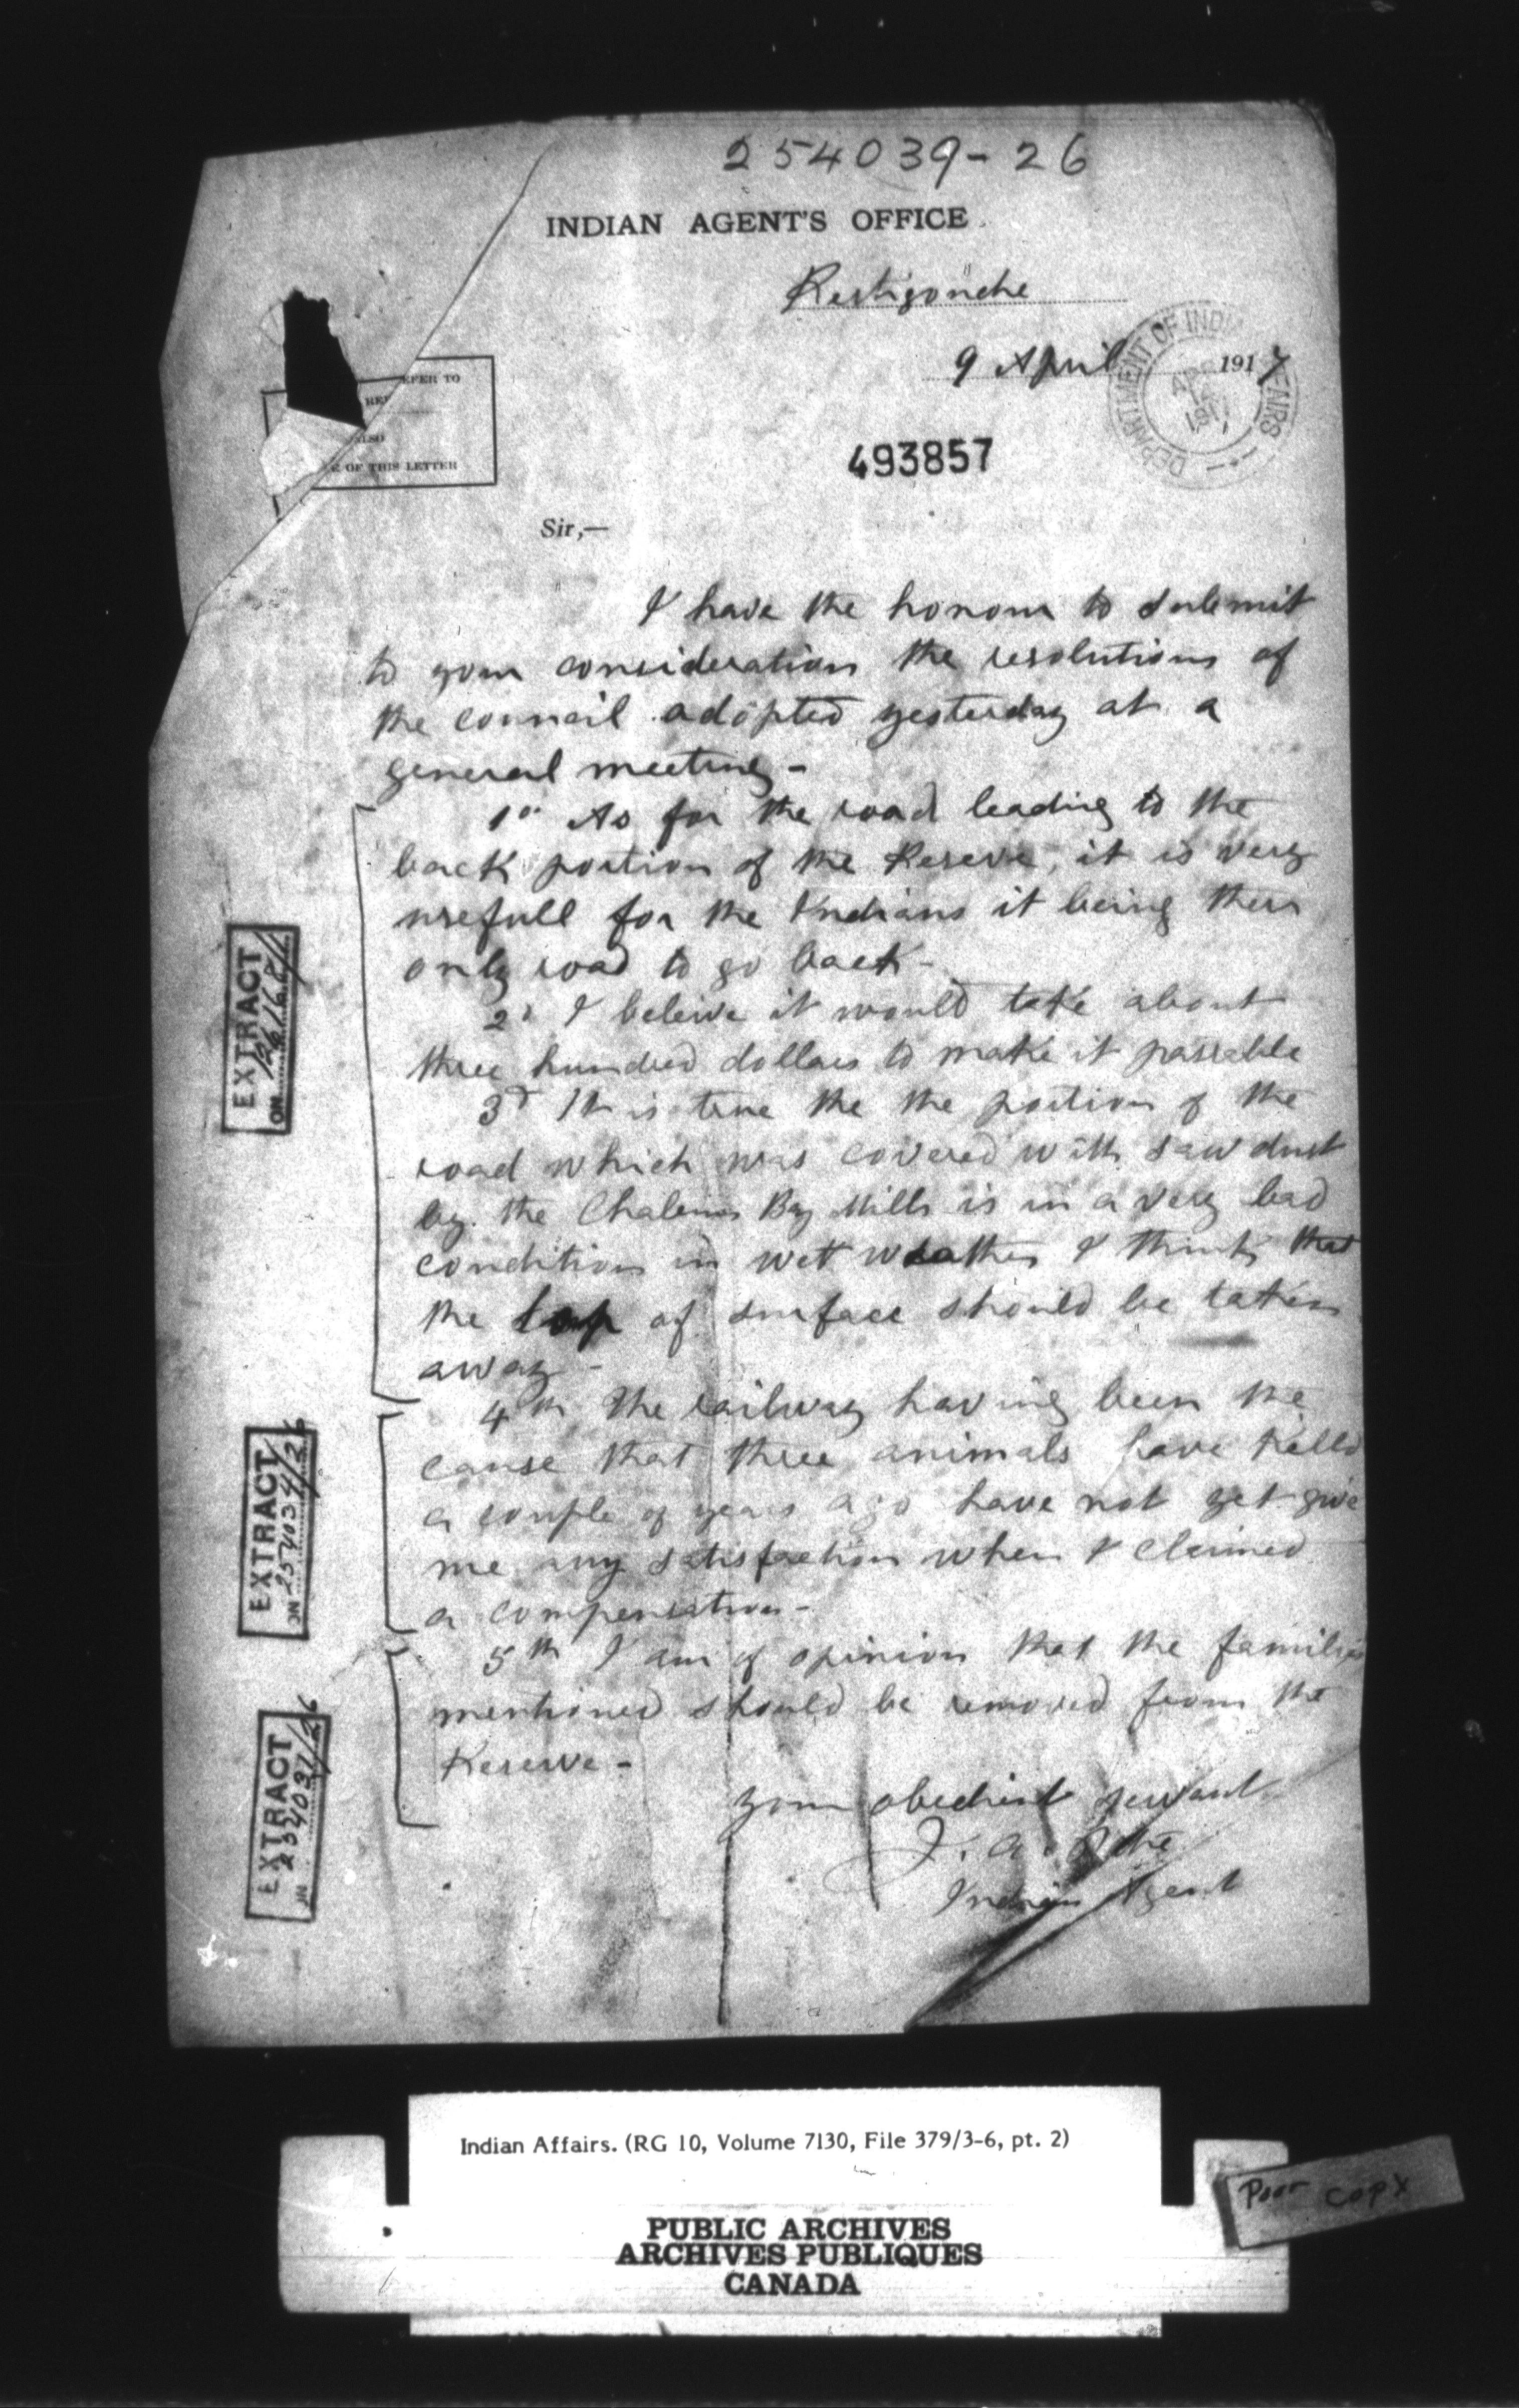 254039-26
INDIAN AGENT'S OFFICE
Restigouche
9 April 1917
DEPARTMENT OF INDI
APR
EFER TO
ALSO
OF THIS LETTER
493857
Sir,—
I have the honour to submit
to your consideration the resolutions of
the council adopted yesterday at a
general meeting -
1° As for the road leading to the
back portion of the Reserve, it is very
usefull for the Indians it being their
only road to go back -
2d I beleive it would take about
three hundred dollars to make it passable
3d It is true the the portion of the
road which was covered with saw dust
by the Chaleurs Bay Mills is in a very bad
condition in wet weather I think that
the top of surface should be taken
away -
4th The railway having been the
cause that three animals have killed
a couple of years ago have not yet give
me any satisfaction when I claimed
a compensation -
5th I am of opinion that the families
mentioned should be removed from the
Reserve -
your obedient servant
J. A. Pitre
Indian Agent
EXTRACT
ON
EXTRACT
ON 254039/26
EXTRACT
254039/26
Indian Affairs. (RG 10, Volume 7130, File 379/3-6, pt. 2)
PUBLIC ARCHIVES
ARCHIVES PUBLIQUES
CANADA
Poor copy